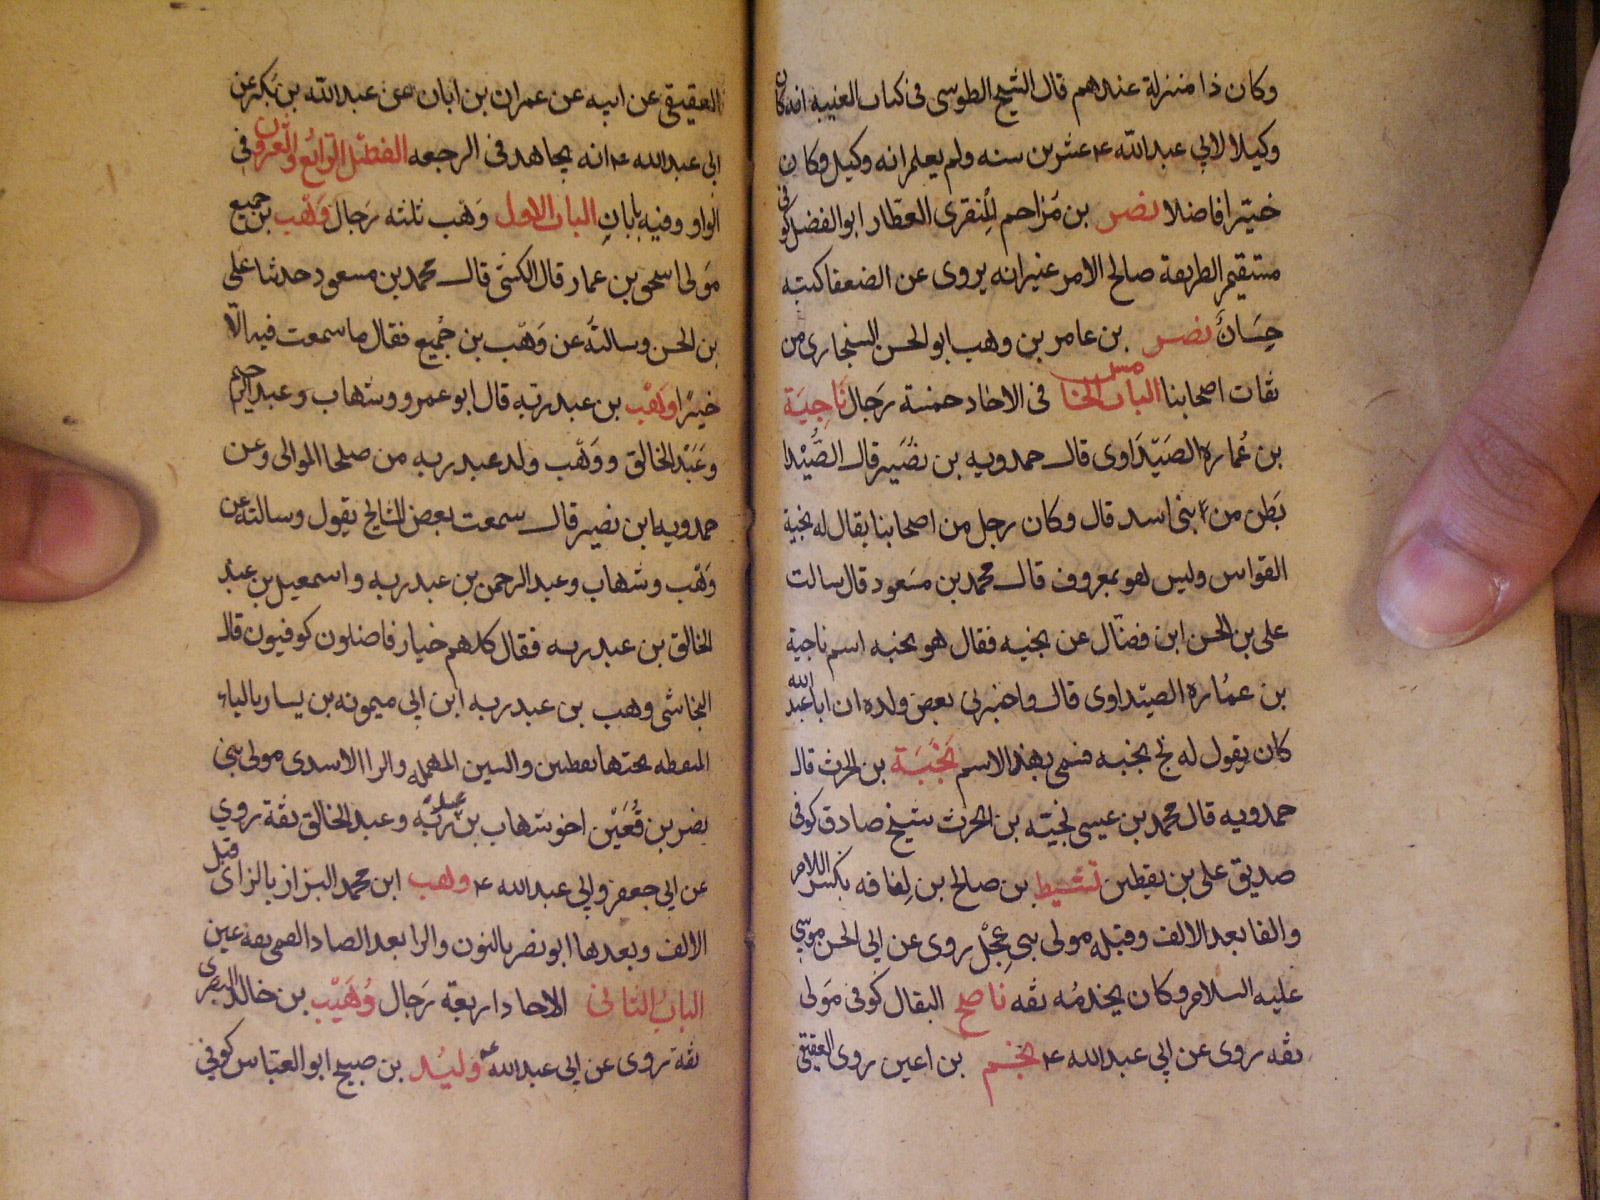 وكان ذا منزلة عندهم قال الشيخ الطوسى فى كتاب الغيبه انه كان
وكيلا لابى عبدالله ع عشرين سنه ولم يعلم انه وكيل وكان
خيّرا فاضلا نصر بن مزاحم المنقرى العطار ابو الفضل كوفى
مستقيم الطريقة صالح الامر غير انه يروى عن الضعفا كتبه
حِسَانٌ نصر بن عامر بن وهب ابو الحسن السنجارى من
ثقات اصحابنا الباب الخامس فى الاحاد خمسة رَجال نَاجِيَة
بن عُماره الصَيّدَاوى قال حمدويه بن نصَير قال الصَّيْدا
بَطن من بنى اسد قال وكان رجل من اصحابنا يقال له نجية
القواس وليس هو بمعروف قال محمد بن مسَعود قال سالت
على بن الحسن ابن فضّال عن نجيه فقال هو نجبه اسم ناجية
بن عمُاره الصيداوى قال واخبرنى بعض ولده ان ابا عبد الله
كان يقول له نج نجبه فسمى بهذا الاسم نَجَبَة بن الحرث قال
حمدويه قال محمد بن عيسى نجيّه بن الحرث شيخ صادق كوفى
صديق على بن يقطين نَشيط بن صالح بن لِفافه بكسر اللام
والفا بعد الالف وقبله مولى بنى عِجْل روى عن ابى الحسن موسى
عليه السلام وكان يخدمُه ثقه ناصح البقال كوفى مَولى
ثقه روى عن ابى عبدالله ع نجم بن اعين روى العقيقى
العقيقى عن ابيه عن عمران بن ابان عن عبدالله بن بكر عن
ابى عبدالله ع انه يجاهد فى الرجعه الفصْل الرَابْع والْعشرون فى
الواو وفيه بابانِ الباب الاول وَهب ثلثه رَجال وَهْب بن جميع
مَولى اسحق بن عمار قال الكشّى قال محمد بن مسعود حدثنا على
بن الحسن وسالتهَ عن وَهّب بن جُميع فقال ما سمعت فيه الّا
خيرًا وَهْب بن عبد ربّه قال ابو عمرو وشهاب وعبد الرحيم
وعَبَدْ الخالق ووَهْب ولد عبد ربه من صلحا الموالى وعن
حمدويه ابن نصير قال سمعت بعض المشايخ يقول وسالته عن
وَهْب وشهاب وعبد الرحمن بن عبد ربه واسمعيل بن عبد
الخالق بن عبد ربه فقال كلهم خيار فاضلون كوفيون قال
النجاشى وهب بن عبد ربه ابن ابى ميمونه بن يسار بالياء
المنقطه تحتها نقطتين والسين المهمله والرا الاسدى مولى بنى
نصر بن قُعَيْن اخو شهاب بن عبد ربّه وعبد الخالق ثقة روى
عن ابى جعفر وابى عبدالله ع وهب ابن محمد البزاز بالزاى قبل
الالف وبعدها ابو نصر بالنون والرا بعد الصاد القمى ثقه عين
البابُ الثانى الاحاد اربعة رَجال وُهَيْب بن خالد البصرى
ثقة روى عن ابى عبدالله ع وَليُد بن صبيح ابو العبّاس كوفى